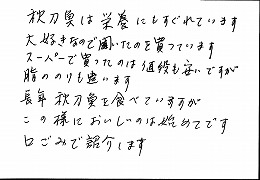 秋刀魚は栄養にもすぐれています
大好きなので開いたのを買っています
スーパーで買ったのは値段も安いですが
脂ののりも違います
長年秋刀魚を食べていますが
この様においしいのは始めてです
口ごみで紹介します